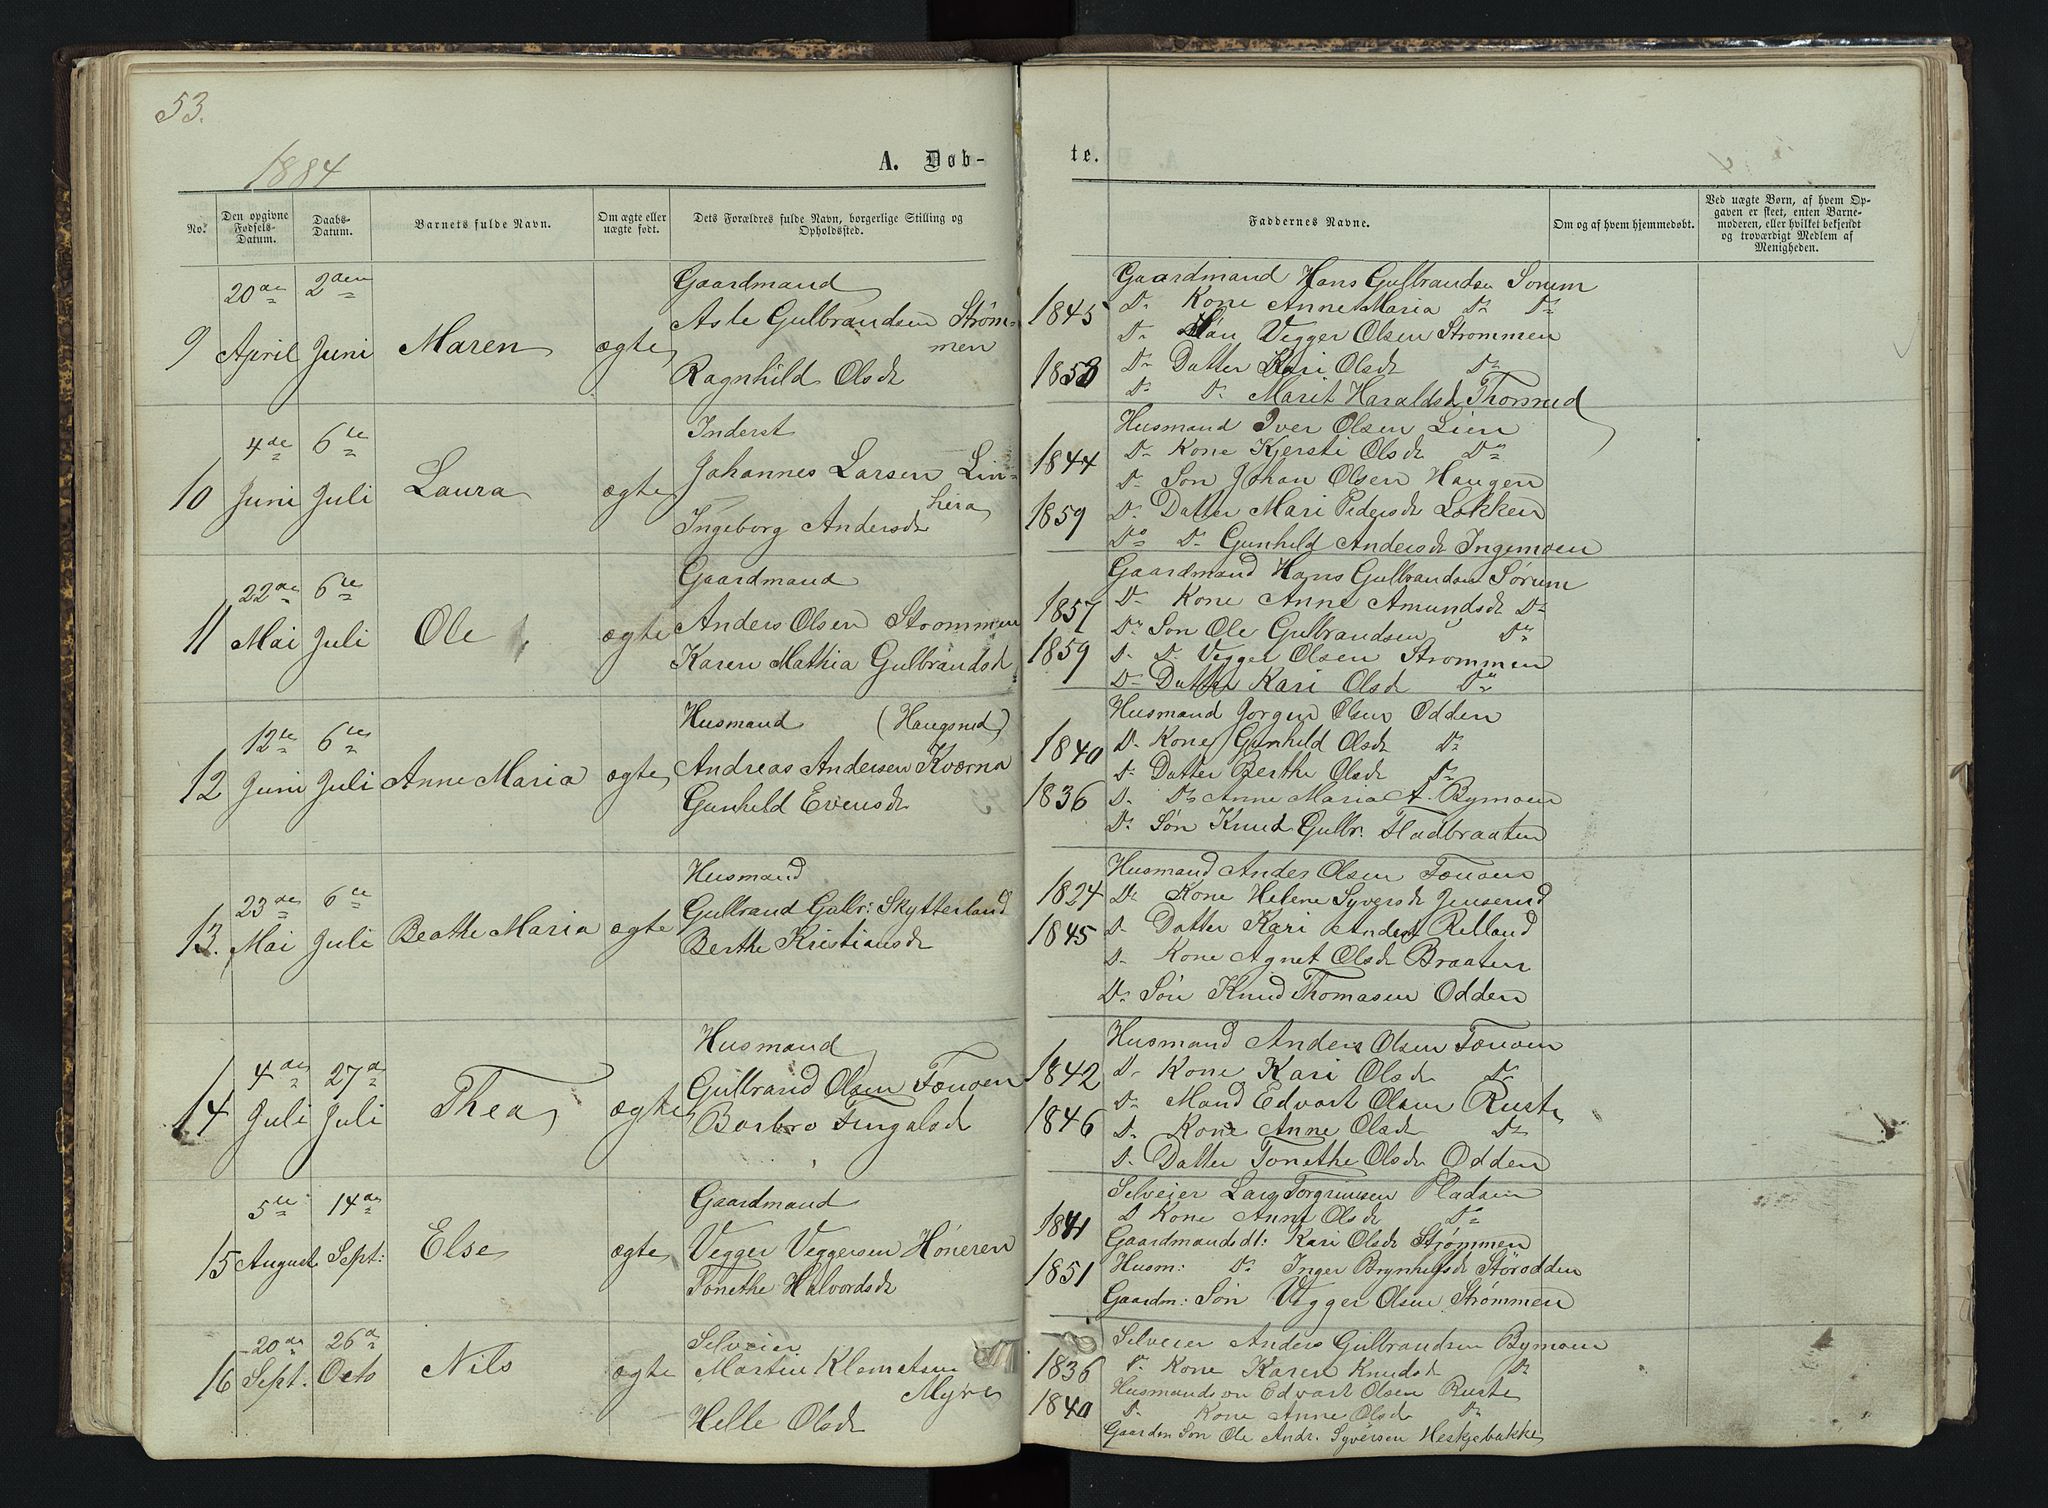 53.
1884
A. Døb-
te.
No.
Den opgivne Fødsels-Datum.
Daabs-Datum.
Barnets fulde Navn.
Om ægte eller uægte født.
Dets Forældres fulde Navn, borgerlige Stilling og Opholdssted.
Faddernes Navne.
Om og af hvem hjemmedøbt.
Ved uægte Børn, af hvem Op-
gaven er skeet, enten Barne-
moderen, eller hvilket bekjendt
og troværdigt Medlem af
Menigheden.
9
20de April
2den Juni
Maren
ægte
Gaardmand
Asle Gulbrandsen Strøm-
men
Ragnhild Olsdr
1845
1853
Gaardmand Hans Gulbrandsen Sorum
Do Kone Anne Maria Do Do
Do Søn Vegger Olsen Strommen
Do Datter Kari Olsdr Do
Do Do Marit Haraldsd Thorsrud
10
4de Juni
6te Juli
Laura
ægte
Inderst
Johannes Larsen Lin-
hera
Ingeborg Andersdr
1844
1859
Husmand Iver Olsen Lien
Do Kone Kjersti Olsdr Do
Do Søn Johan Olsen Haugen
Do Datter Mari Pedersdr Løkken
Do Do Gunhild Andersdr Ingemoen
11
22de Mai
6te Juli
Ole
ægte
Gaardmand
Anders Olsen Strommen
Karen Mathia Gulbrandsd
1857
1859
Gaardmand Hans Gulbrandsen Sørum
Do Kone Anne Amundsdr Do
Do Søn Ole Gulbrandsen Do
Do Do Vegger Olsen Strommen
Do Datter Kari Olsdr Do
12
12te Juni
6te Juli
Anne Maria
ægte
Husmand (Haugsrud)
Andreas Andersen Kværna
Gunhild Evensdr
1840
1836
Husmand Jorgen Olsen Odden
Do Kone Gunhild Olsdr Do
Do Datter Berthe Olsdr Do
Do Do Anne Maria A. Bymoen
Do Søn Knud Gulbr. Fladbraaten
13.
23de Mai
6te Juli
Beathe Maria
ægte
Husmand
Gulbrand Gulbr: Skytterland
Berthe Kristiansdr
1824
1845
Husmand Anders Olsen
Do Kone Helene Syversdr Jensrud
Do Datter Kari Andersd
Do Kone Agnet Olsdr Braaten
Do Søn Knud Thomasen Odden
14
4de Juli
27de Juli
Thea
ægte
Husmand
Gulbrand Olsen
Barbro Fingalsdr
1842
1846
Husmand Anders Olsen
Do Kone Kari Olsdr Do
Do Mand Edvart Olsen Ruste
Do Kone Anne Olsdr Do
Do Datter Tonethe Olsdr Odden
15
5te August
14de Sept:
Else
ægte
Gaardmand
Vegger Veggersen Høneren
Tonethe Halvordsdr
1841
1851
Selveier Lars Torgrimsen Pladsen
Do Kone Anne Olsdr Do
Gaardmandsdt: Kari Olsdr Strømmen
Husm: Do Inger Brynhilsdr
Gaardm: Søn Vegger Olsen Strømmen
16
20de Sept.
26de Octo
Nils
ægte
Selveier
Martin Klemetsen
Myre
Helle Olsdr
1836
1840
Selveier Anders Gulbrandsen Bymoen
Do Kone Karen Knudsdr Do
Husmandsøn Edvart Olsen Ruste
Do Kone Anne Olsdr Do
Gaardm Søn Ole Andr. Syversen Heskjebakke